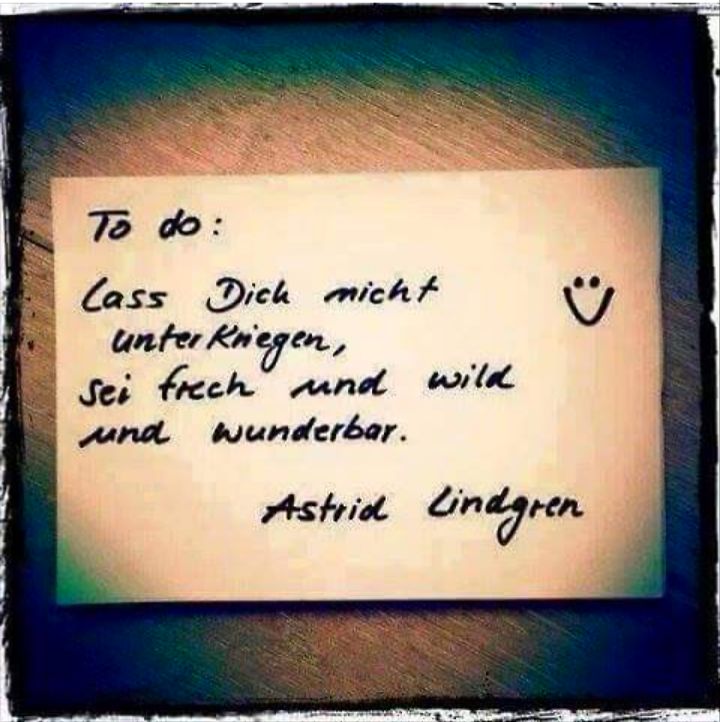 To do:
Lass Dich nicht
unterkriegen,
sei frech und wild
und wunderbar.
Astrid Lindgren